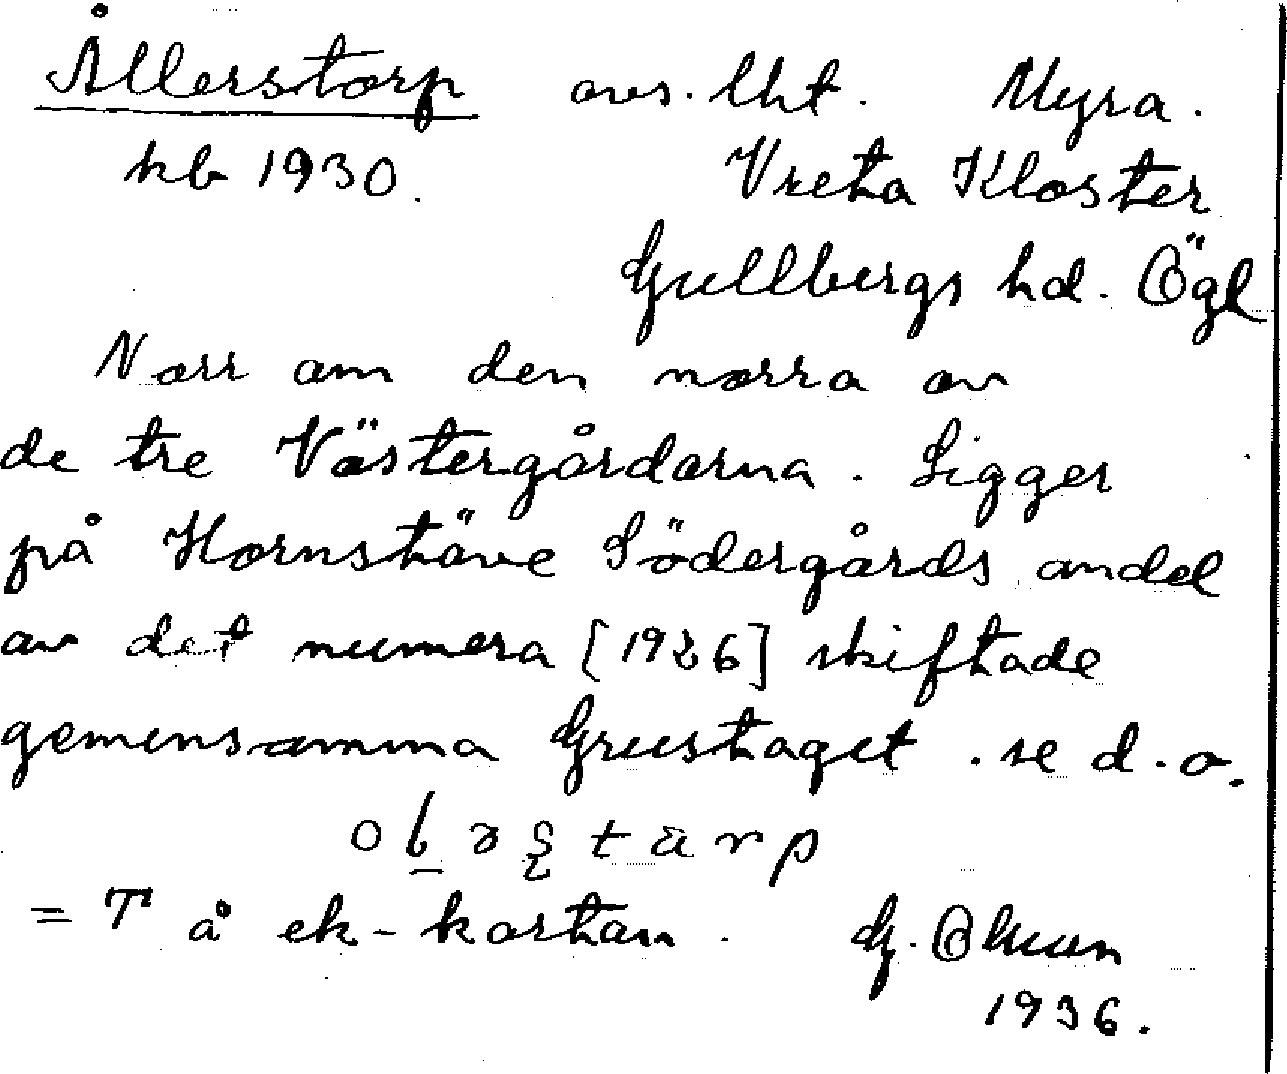 Ållerstorp avs. lht. Myra.
kb 1930. Vreta Kloster
Gullbergs hd. Ögl
Norr om den norra av
de tre Västergårdarna. Ligger
på Kornstäve Södergårds andel
av det numera [1926] skiftade
gemensamma Grustaget. se d.o.
= T å ek-kartan. G.
1936.